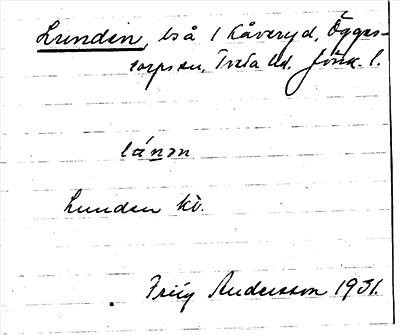 Lunden, bså 1 Kåveryd, Öggas-
torps sn, Tveta hd, Jönk. l.
lánən
Lunden kv.
Frity Andersson 1931.